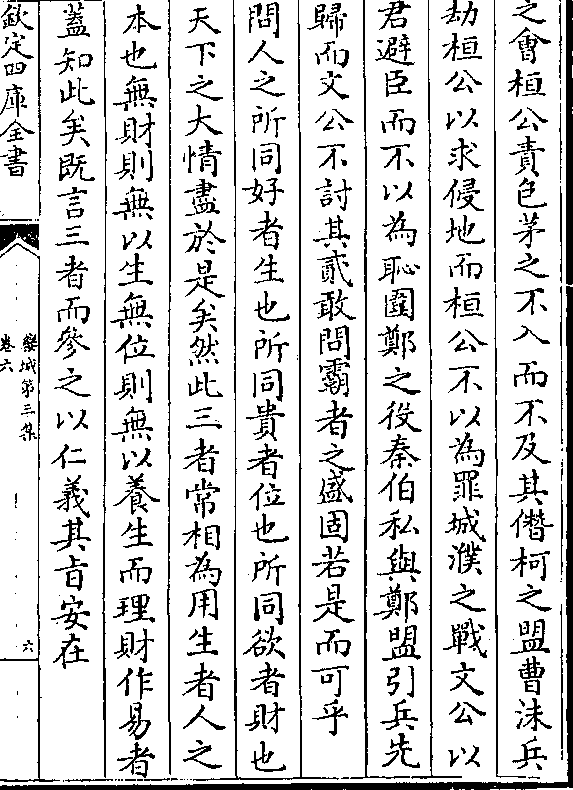 之會桓公責包茅之不入而不及其僭柯之盟曹沬兵
劫桓公以求侵地而桓公不以為罪城濮之戰文公以
君避臣而不以為恥圍鄭之役秦伯私與鄭盟引兵先
歸而文公不討其貳敢問霸者之盛固若是而可乎
問人之所同好者生也所同貴者位也所同欲者財也
天下之大情盡於是矣然此三者常相為用生者人之
本也無財則無以生無位則無以養生而理財作易者
蓋知此矣既言三者而參之以仁義其旨安在
欽定四庫全書
欒城第三集
卷六
六